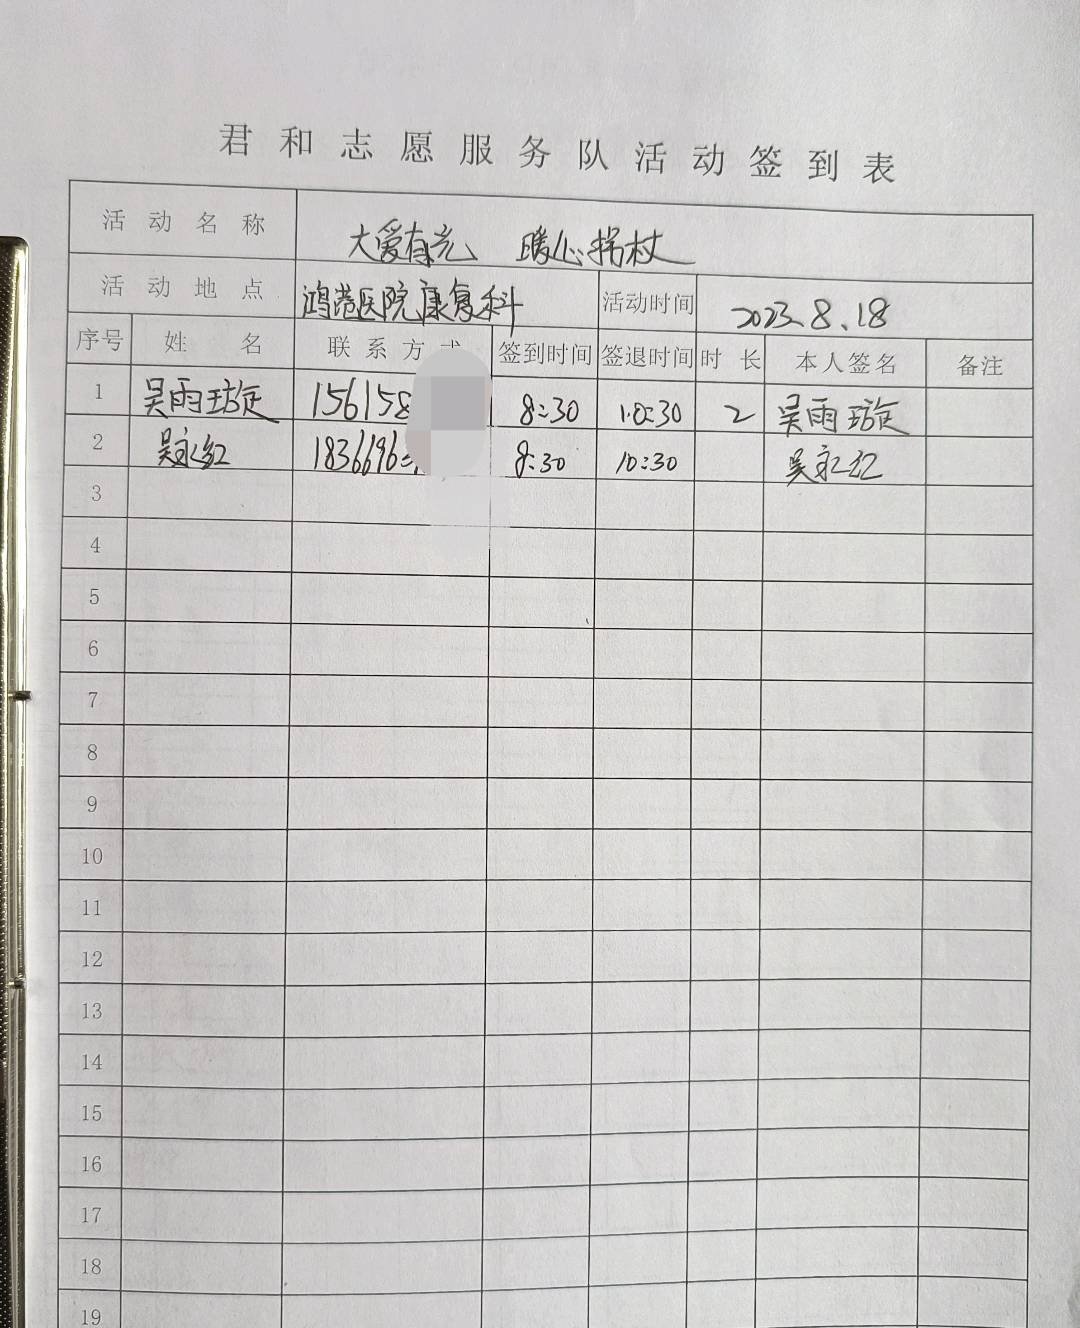 君和志愿服务队活动签到表
活动名称 大爱有光 暖心拐杖
活动地点 鸿港医院康复科 活动时间 2023.8.18
序号 姓名 联系方式 签到时间 签退时间 时长 本人签名 备注
1 吴雨璇 156158 1 8:30 10:30 2 吴雨璇
2 吴永红 1836696 8:30 10:30 吴永红
3
4
5
6
7
8
9
10
11
12
13
14
15
16
17
18
19